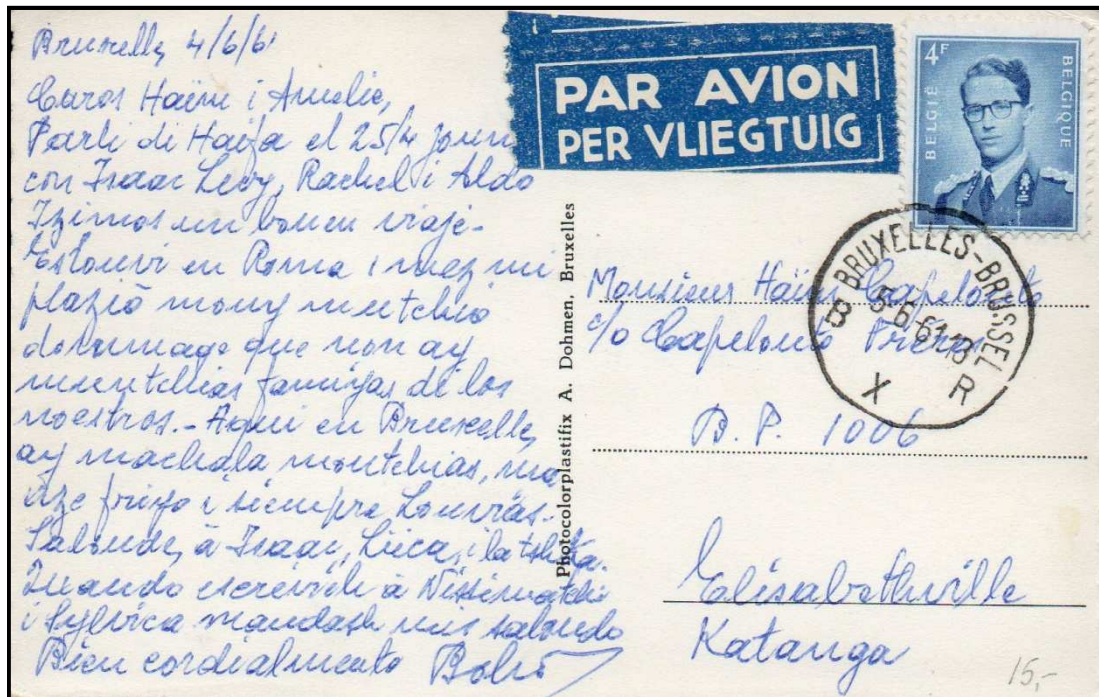 Bruxelles 4/6/61
Caros Haïm i Amelie,
Parti di Haïfa el 25/4 journ
con Isaac Levy, Rachel i Aldo
Izimos un bouen viaje-
Estouvi en Roma i mez mi
plaziò mouy mutchio
dommage que non ay
mutchias famiyas de los
noestros.- Aqui en Bruxelles,
ay machala moutchias, ma
aze friyo i siempre Louvias.-
Saloudes à Isaac, Luca, i la
Quando escrevich à Nissimatchi
i Sylvica mandash mis saloudo
Bien cordialmento
PAR AVION
PER VLIEGTUIG
4F
BELGIË
BELGIQUE
BRUXELLES-BRUSSEL
5-6-61.18
B X R
Photocolorplastifix A. Dohmen, Bruxelles
Monsieur Haïm Capelouto
c/o Capelouto Frères
B. P. 1006
Elisabethville
Katanga
15,-